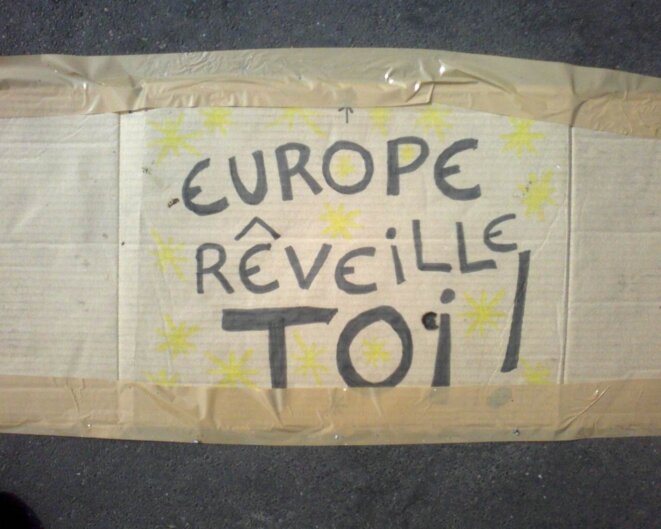 EUROPE
RÊVEiLLE
TOi !